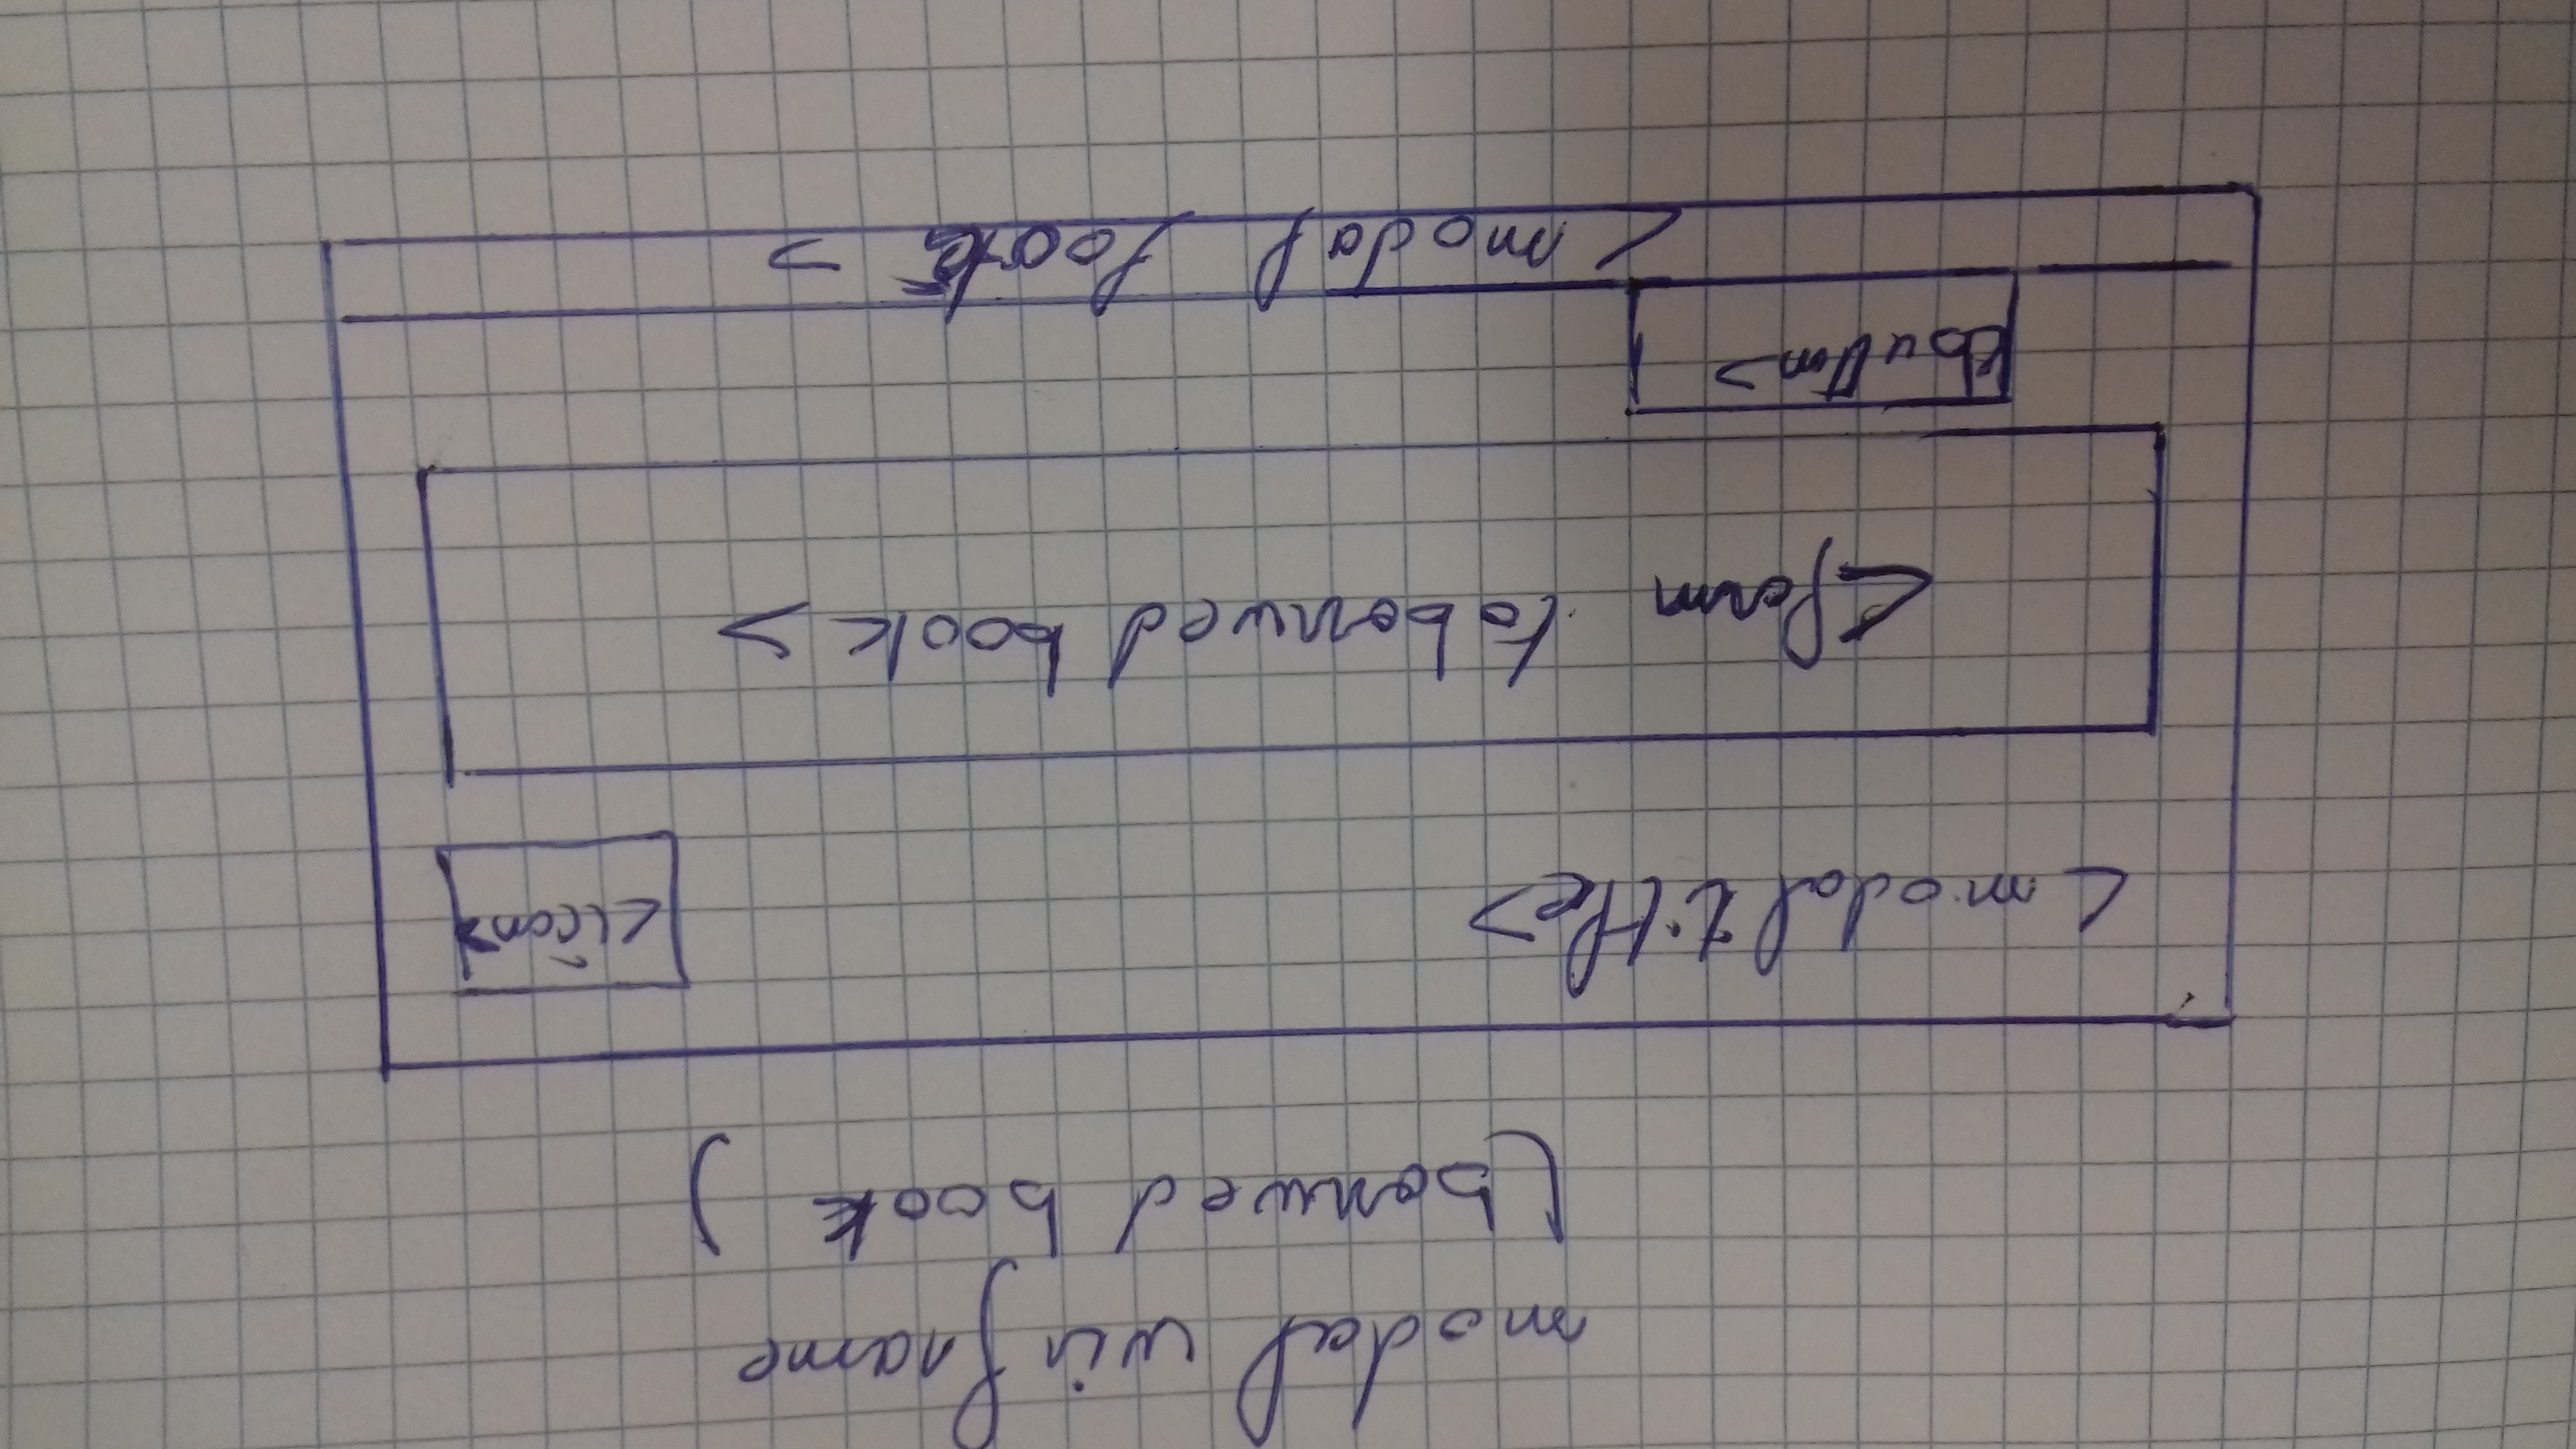 modal wif name
(borrwed book)
<modal title>
<icon>
<form to borrwed book>
<button>
<modal footer>